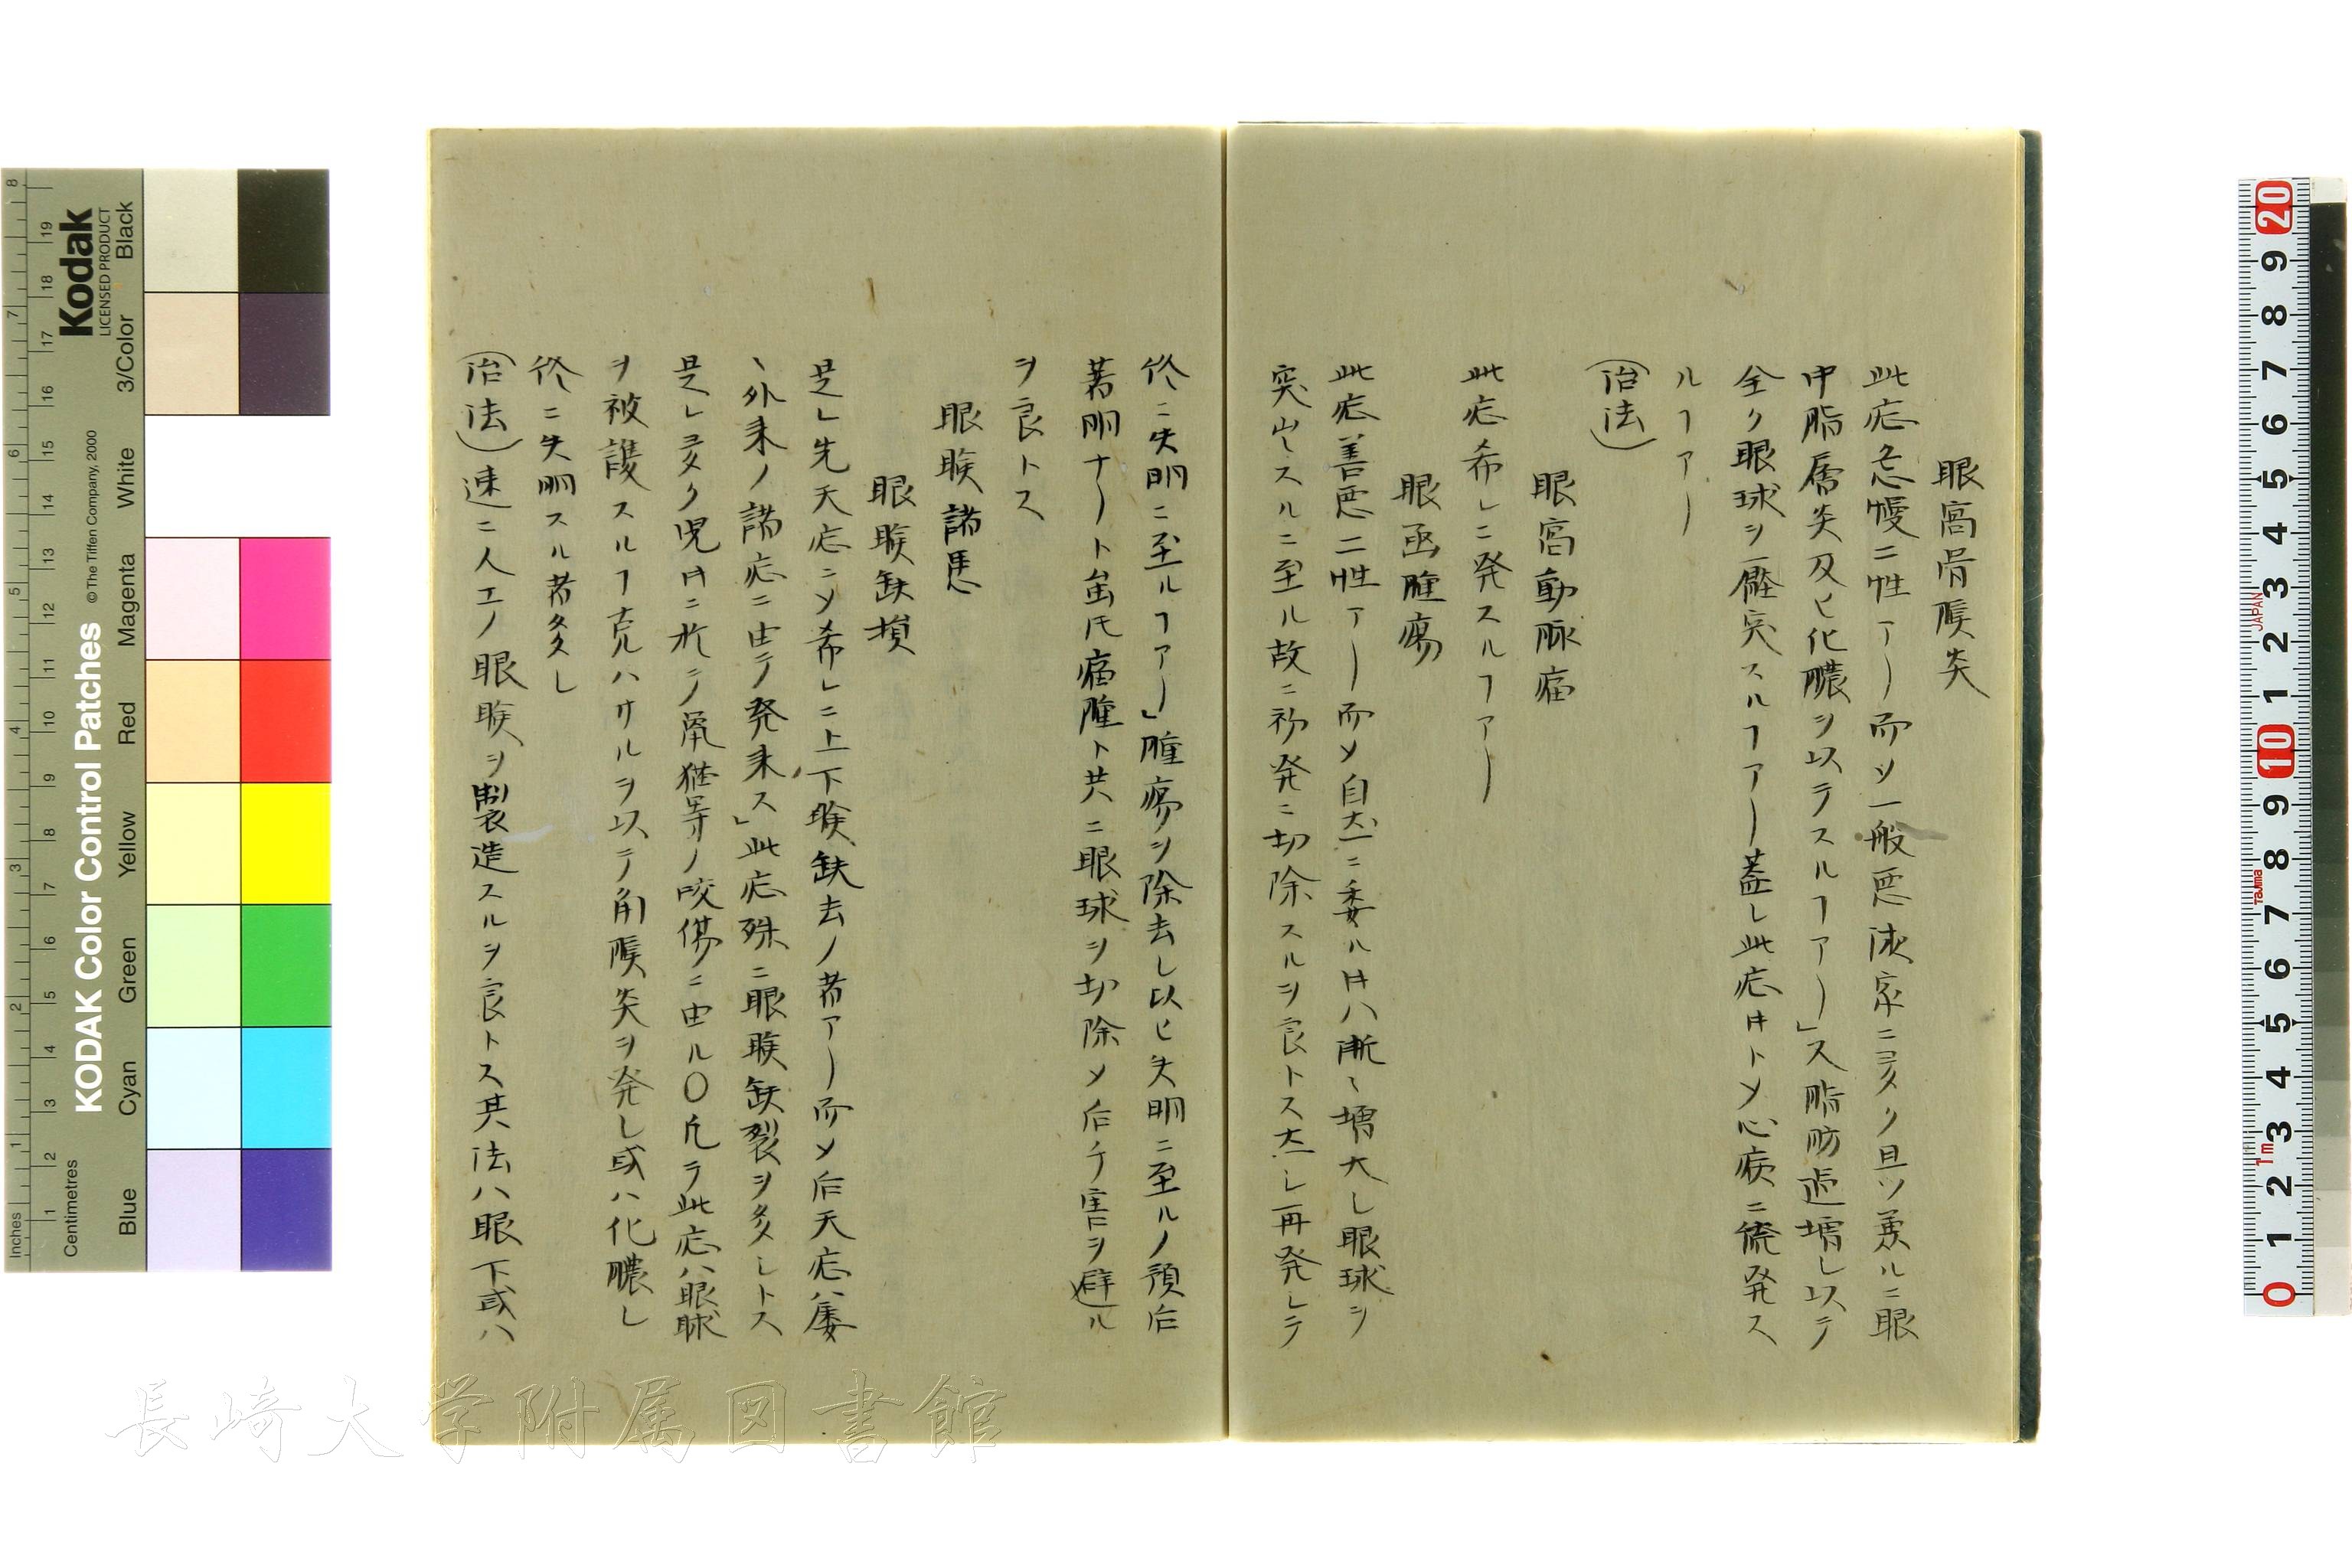 眼窩骨膜炎
此症急慢二性アリ而〆一般悪液家ニ多ク且ツ兼ルニ眼
中脂層炎及ヒ化膿ヲ以テスルヿアリ」又脂肪過増し以テ
全ク眼球ヲ突スルヿアリ蓋し此症時トメ心病ニ発ス
ルヿアリ
(治法)
眼窩動脈瘤
此症希レニ発スルヿアリ
眼函腫瘍
此症善悪二性アリ而メ自然ニ委ル時ハ漸々増大し眼球ヲ
突出スルニ至ル故ニ初発ニ切除スルヲ良トス然レ再発シテ
終ニ失明ニ至ルヿアリ」腫瘍ヲ除去し以ヒ失明ニ至ルノ預后
著明ナリト雖𪜈瘤腫ト共ニ眼球ヲ切除メ后チ害ヲ避ル
ヲ良トス
眼瞼諸患
眼瞼缺損
是レ先天症ニメ希レニ上下瞼缺去ノ者アリ而メ后天症ハ屡
々外来ノ諸症ニ由テ発来ス」此症殊ニ眼瞼缺裂ヲ多シトス
是レ多ク児時ニ於テ鼠猫等ノ咬傷ニ由ル〇凡ラ此症ハ眼球
ヲ被護スルヿ克ハサルヲ以テ角膜炎ヲ発し或ハ化膿し
終ニ失明スル者多し
(治法)速ニ人工ノ眼瞼ヲ製造スルヲ良トス其法ハ眼下或ハ
長崎大学附属図書館
Kodak
LICENSED PRODUCT
KODAK Color Control Patches
© The Tiffen Company, 2000
Inches
Centimetres
Blue Cyan Green Yellow Red Magenta White 3/Color Black
JAPAN
Tajima
1m